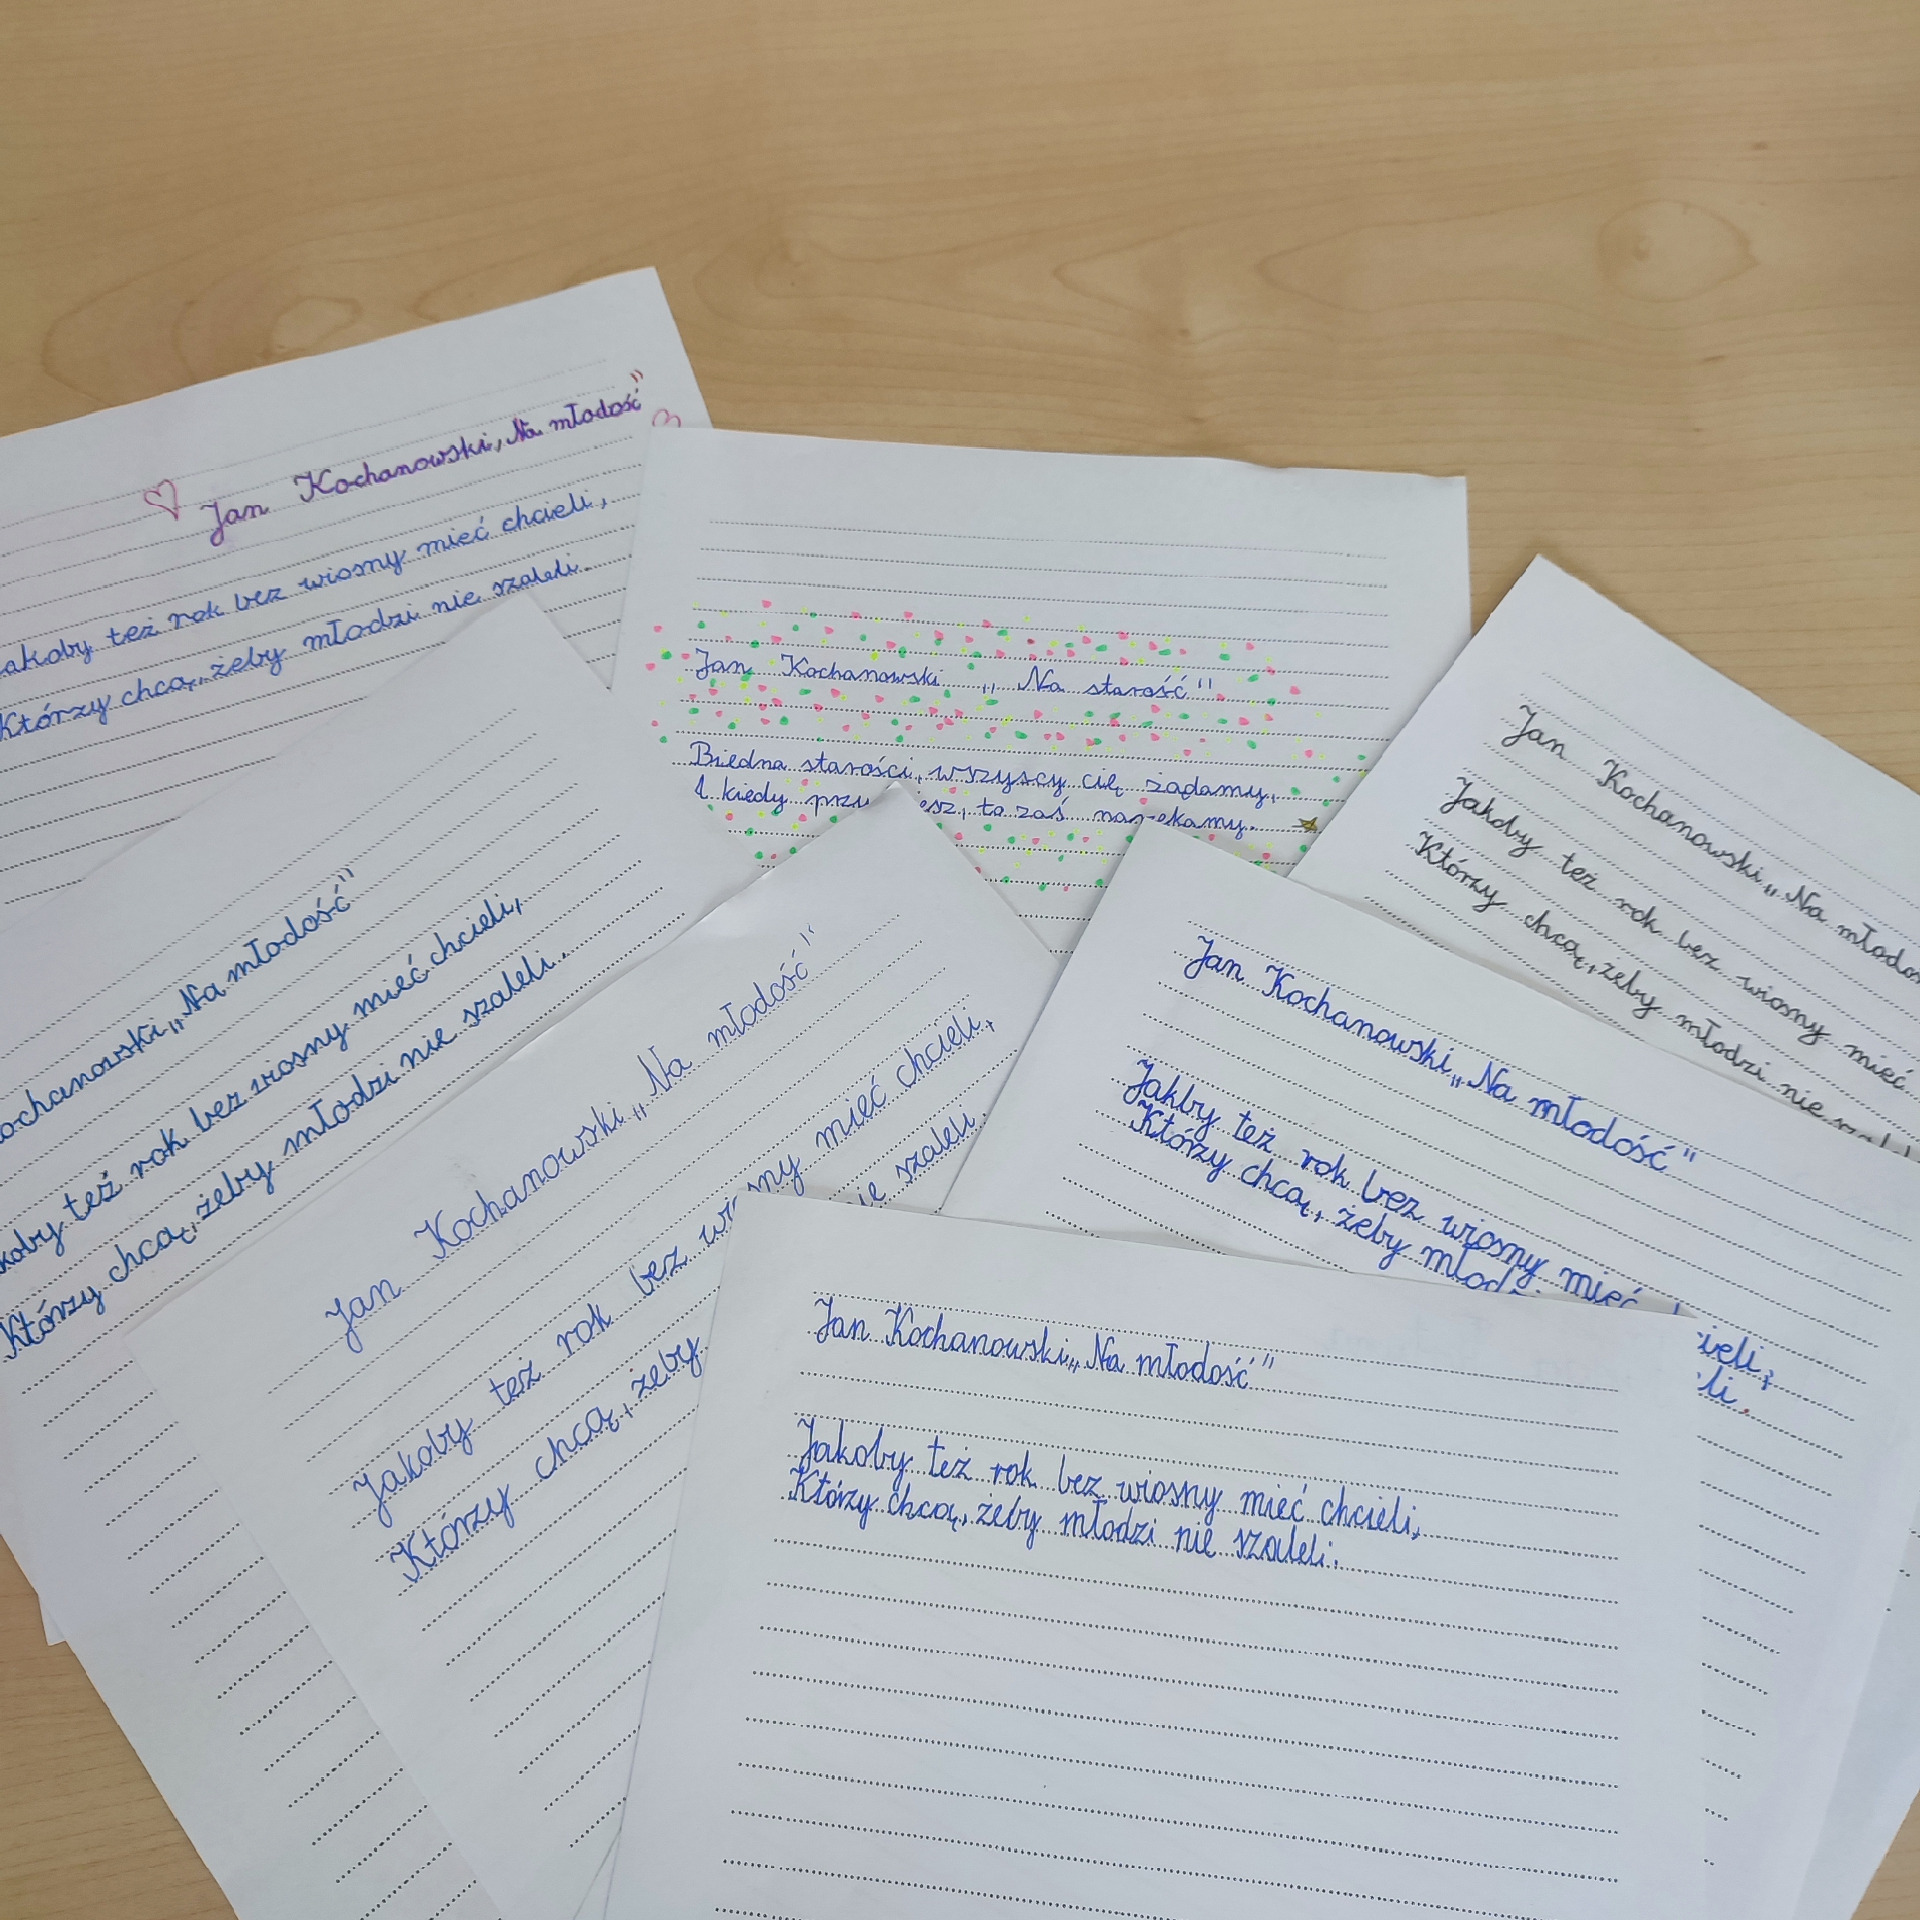 Jan Kochanowski „Na młodość"
akoby też rok bez wiosny mieć chcieli,
Którzy chcą, żeby młodzi nie szaleli.
Jan Kochanowski „Na starość"
Biedna starości, wszyscy cię żądamy,
A kiedy przy esz, to zaś narzekamy.
Jan Kochanowski „Na młodoś
Jakoby też rok bez wiosny mieć
Którzy chcą, żeby młodzi nie szal
ochanowski „Na młodość"
koby też rok bez wiosny mieć chcieli,
Którzy chcą, żeby młodzi nie szaleli.
Jan Kochanowski „Na młodość"
Jakoby też rok bez wiosny mieć chcieli,
Którzy chcą, żeby ie szaleli.
Jan Kochanowski „Na młodość"
Jakby też rok bez wiosny mieć cieli,
Którzy chcą, żeby młodzi li.
Jan Kochanowski „Na młodość"
Jakoby też rok bez wiosny mieć chcieli,
Którzy chcą, żeby młodzi nie szaleli.